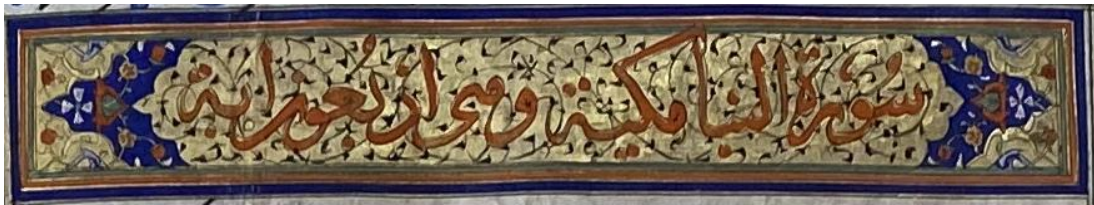 سورة النبا مكية وهى اربعون اية